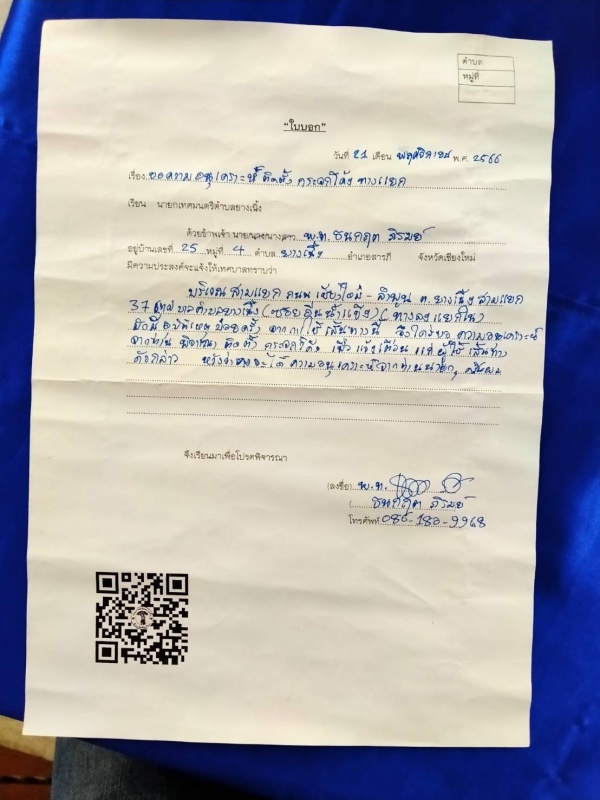 ตำบล
หมู่ที่
"ใบบอก"
วันที่ 21 เดือน พฤศจิกายน พ.ศ. 2566
เรื่อง ขอความอนุเคราะห์ ติดตั้ง กระจกโค้ง ทางแยก
เรียน นายกเทศมนตรีตำบลยางเนิ้ง
ด้วยข้าพเจ้า นาย/นาง/นางสาว พ.ท. ธนกฤต ภิรมย์
อยู่บ้านเลขที่ 25 หมู่ที่ 4 ตำบล ยางเนิ้ง อำเภอสารภี จังหวัดเชียงใหม่
มีความประสงค์จะแจ้งให้เทศบาลทราบว่า
บริเวณ สามแยก ถนน เชียงใหม่ - ลำพูน ต. ยางเนิ้ง สามแยก
37 เทศบาลตำบลยางเนิ้ง (ซอย น้ำแข็ง) (ทางลง
มักมีอุบัติเหตุ บ่อยครั้ง จากการใช้เส้นทางนี้ จึงใคร่ขอ ความอนุเคราะห์
จากท่าน พิจารณา ติดตั้ง กระจกโค้ง เพื่อ แจ้งเตือน แก่ ผู้ใช้ เส้นทาง
ดังกล่าว หวังว่าคงจะได้ ความอนุเคราะห์จากท่านนายก
จึงเรียนมาเพื่อโปรดพิจารณา
(ลงชื่อ) พ.ท.
( ธนกฤต ภิรมย์
โทรศัพท์ 086-180-9968